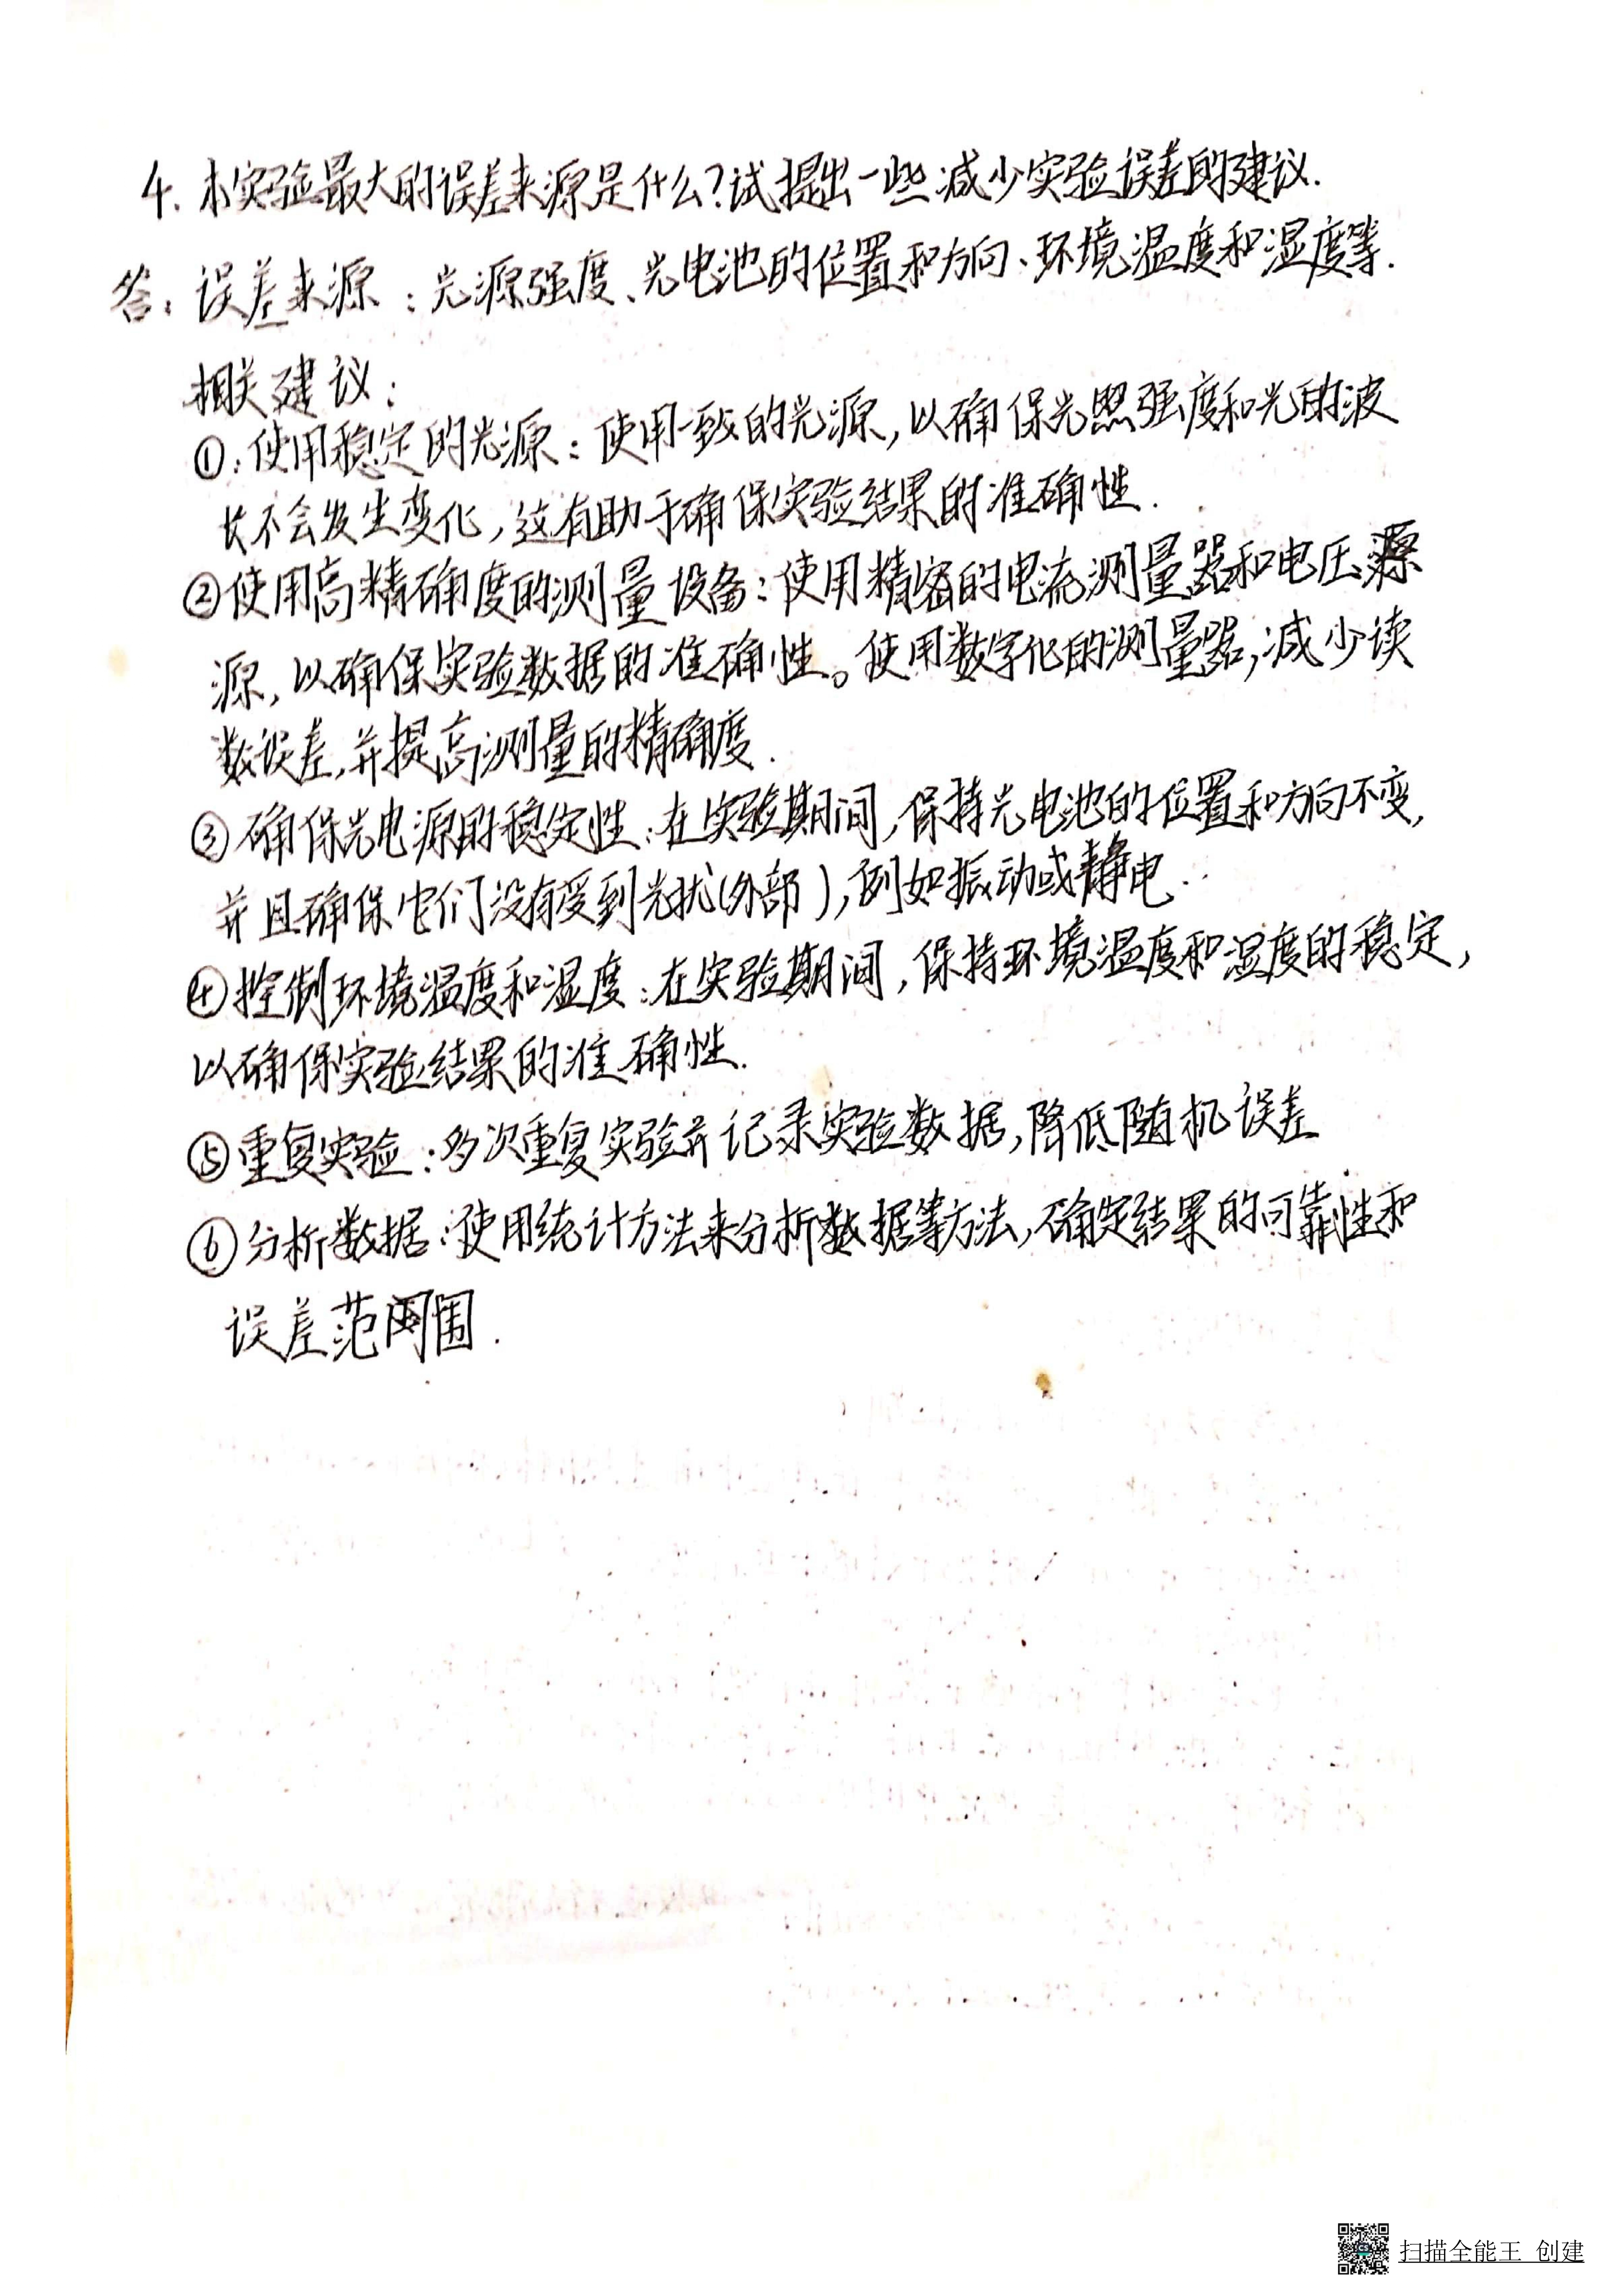 4. 本实验最大的误差来源是什么?试提出一些减少实验误差的建议.
答: 误差来源:光源强度、光电池的位置和方向、环境温度和湿度等.
相关建议:
①:使用稳定的光源:使用一致的光源,以确保光照强度和光的波
长不会发生变化,这有助于确保实验结果的准确性.
②使用高精确度的测量设备:使用精密的电流测量器和电压
源,以确保实验数据的准确性。使用数字化的测量器,减少读
数误差,并提高测量的精确度.
③确保光电源的稳定性:在实验期间,保持光电池的位置和方向不变,
并且确保它们没有受到光扰(外部),例如振动或静电.
④控制环境温度和湿度:在实验期间,保持环境温度和湿度的稳定,
以确保实验结果的准确性.
⑤重复实验:多次重复实验并记录实验数据,降低随机误差
⑥分析数据:使用统计方法来分析数据等方法,确定结果的可靠性和
误差范围.
扫描全能王 创建